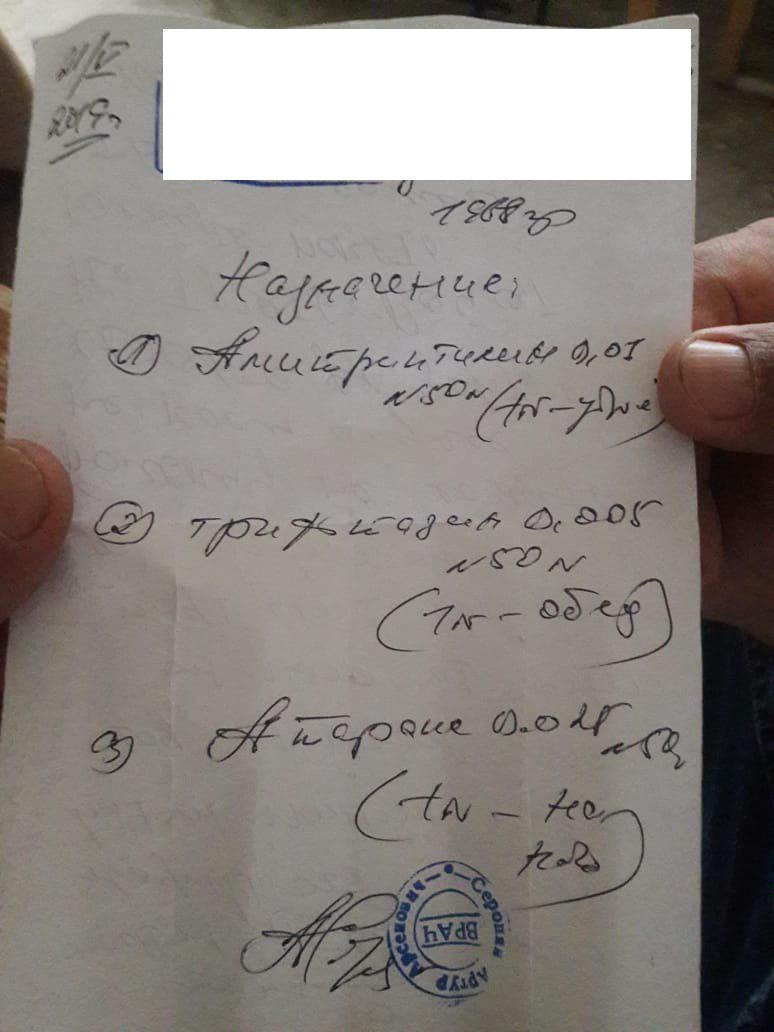 21/V
2019г.
1988 гр
Назначение:
1) Амитриптилин 0,01
N50 N (1N – утре)
2) трифтазин 0,005
N50 N
(1N – обед)
3) Атаракс 0.025 N50
(1N – на
ночь)
Серопян Артур Арсенович
ВРАЧ